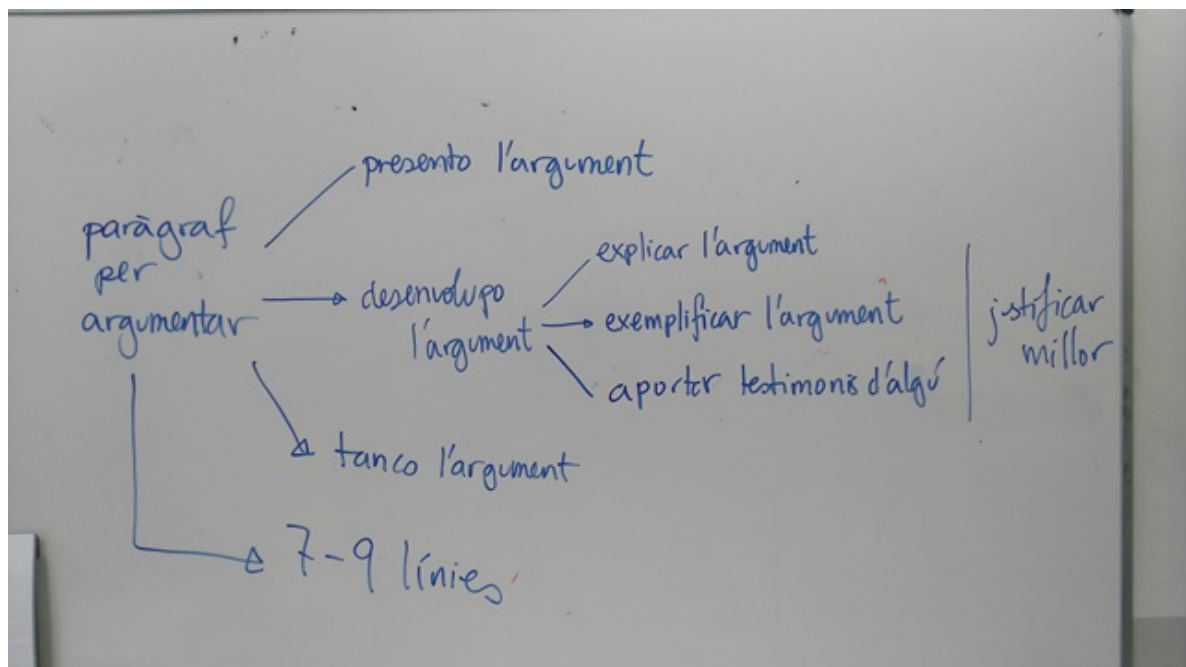 presento l'argument
paràgraf
per
argumentar
desenvolupo
l'argument
explicar l'argument
exemplificar l'argument
aportar testimonis d'algú
justificar
millor
tanco l'argument
7-9 línies